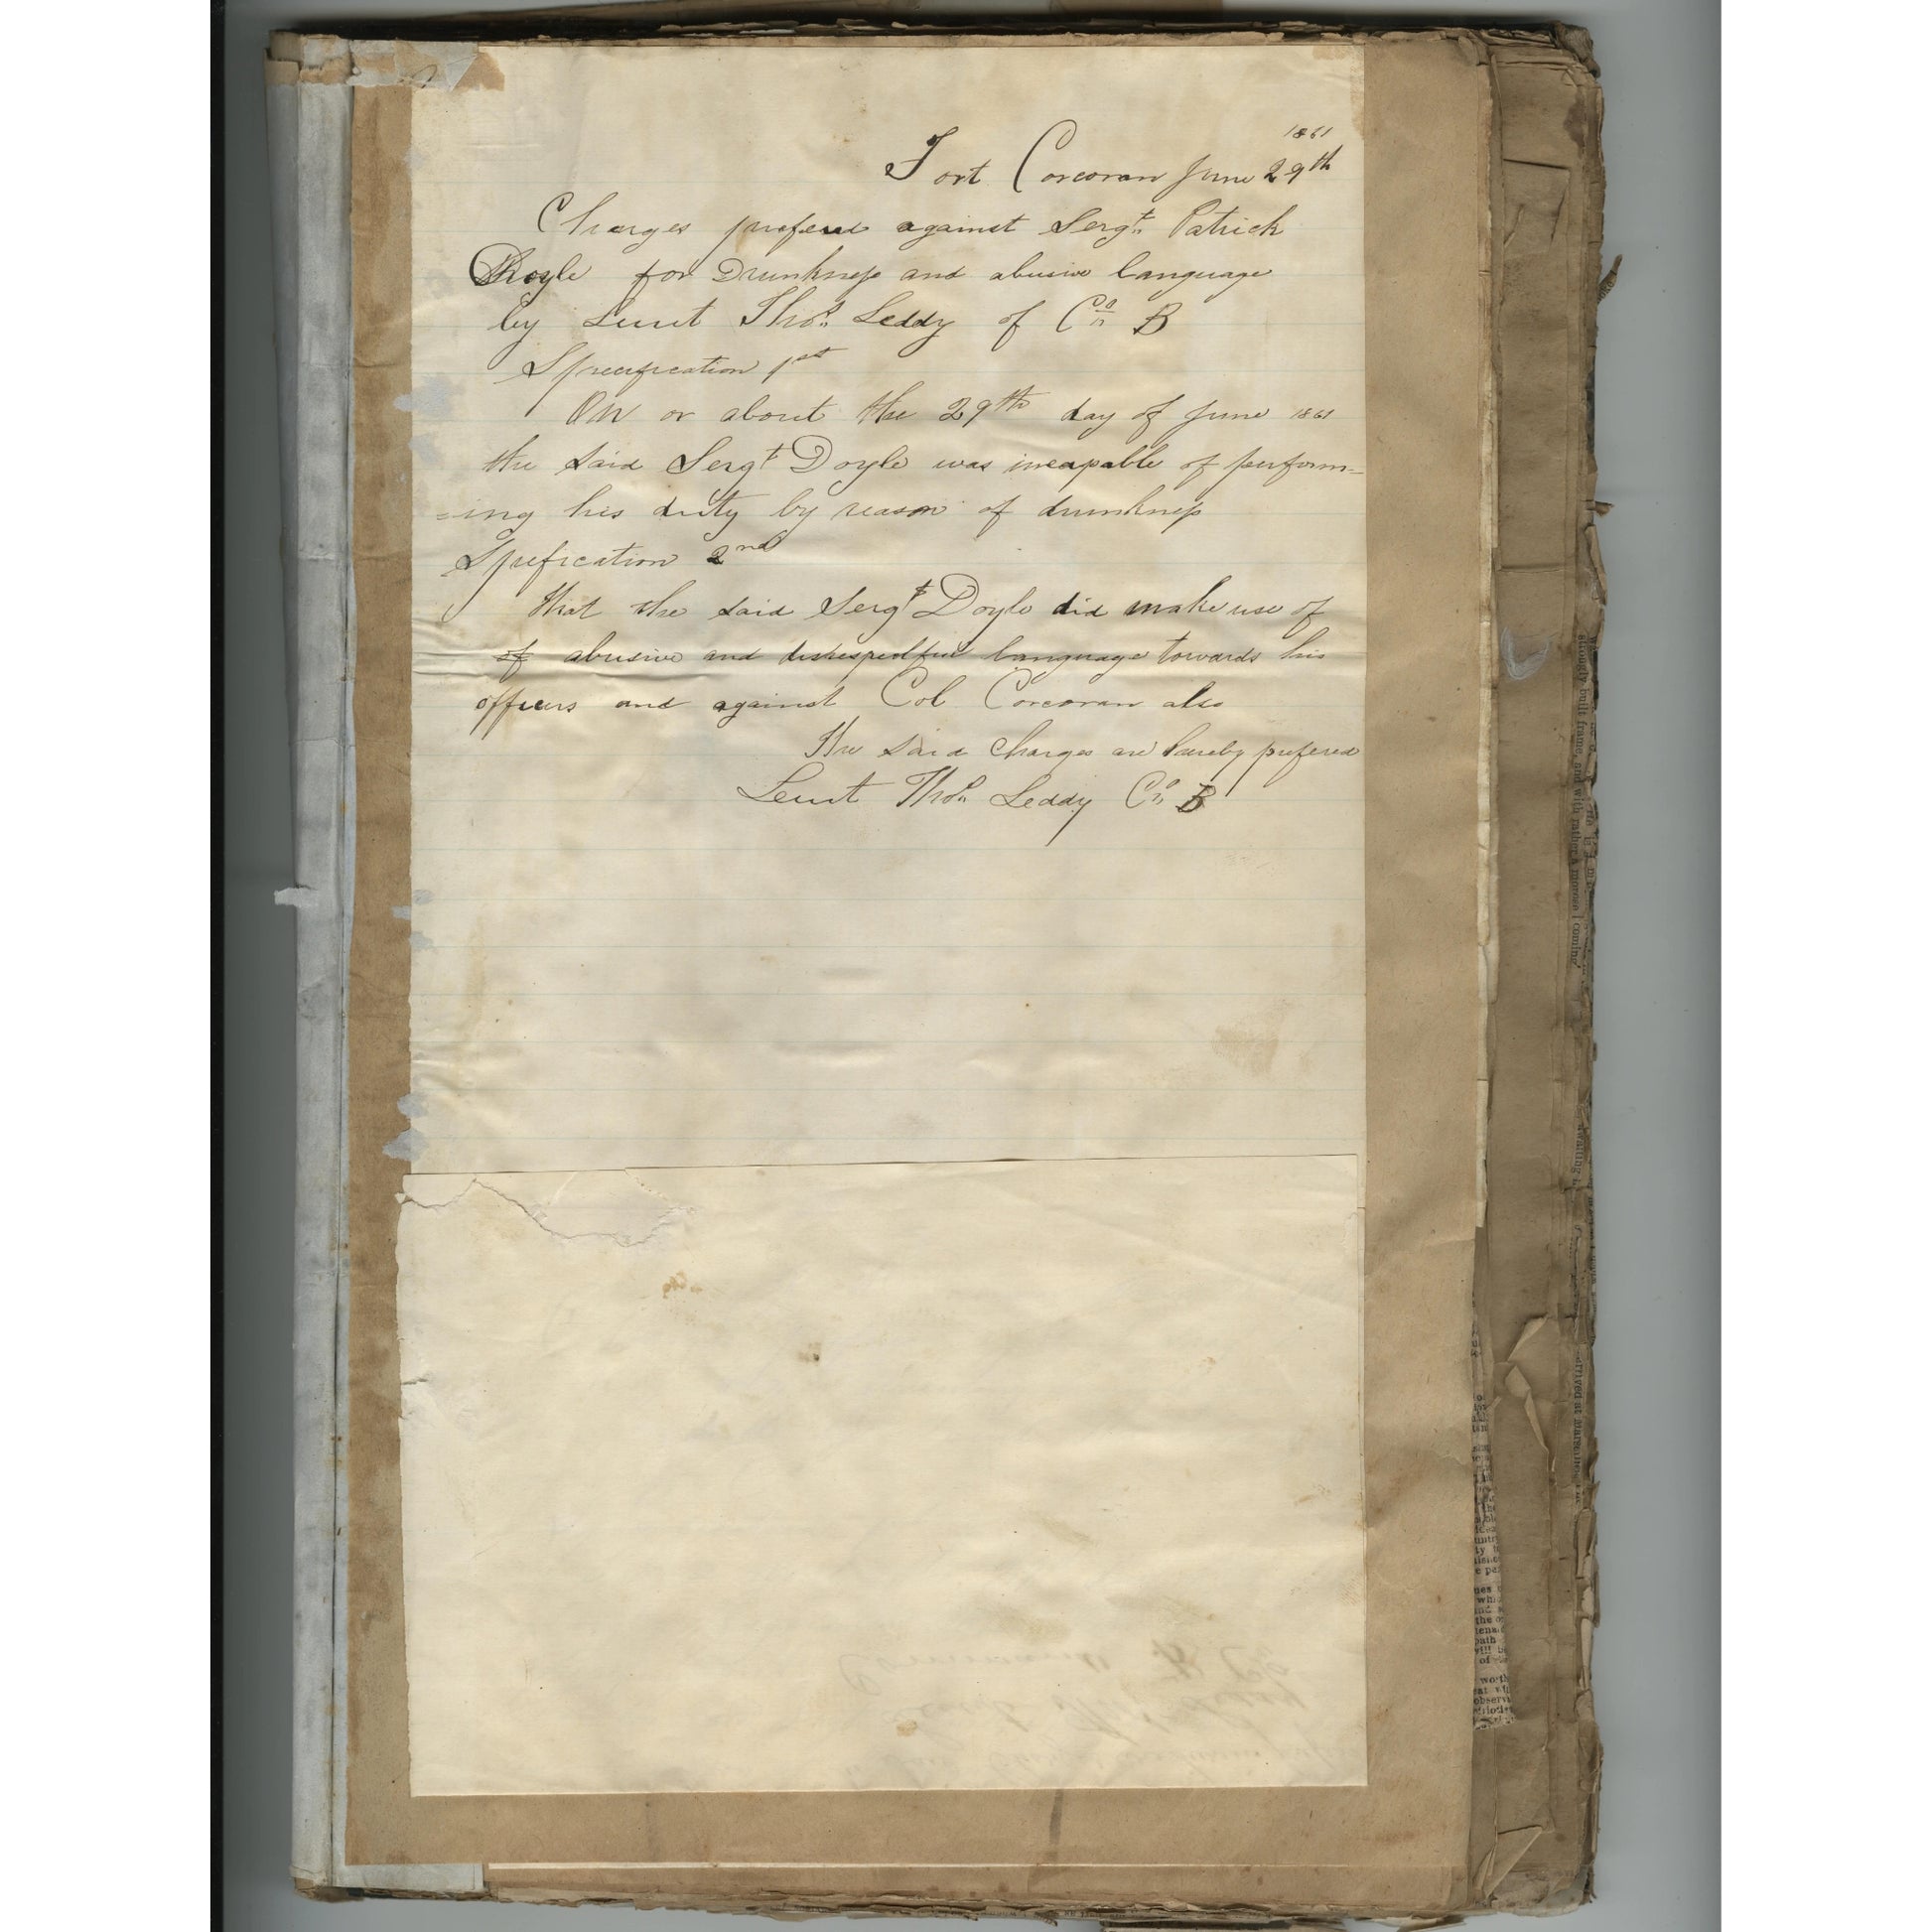 1861
Fort Corcoran June 29th
Charges prefered against Sergt. Patrick
Doyle for Drunkness and abusive language
by Leiut Thos. Leddy of Co. B
Specification 1st
On or about the 29th day of June 1861
the said Sergt Doyle was incapable of perform=
=ing his duty by reason of drunkness
Spefication 2nd
that the said Sergt Doyle did make use of
of abusive and disrespectful language towards his
officers and against Col Corcoran also
The said charges are hereby prefered
Leiut Thos. Leddy Co. B